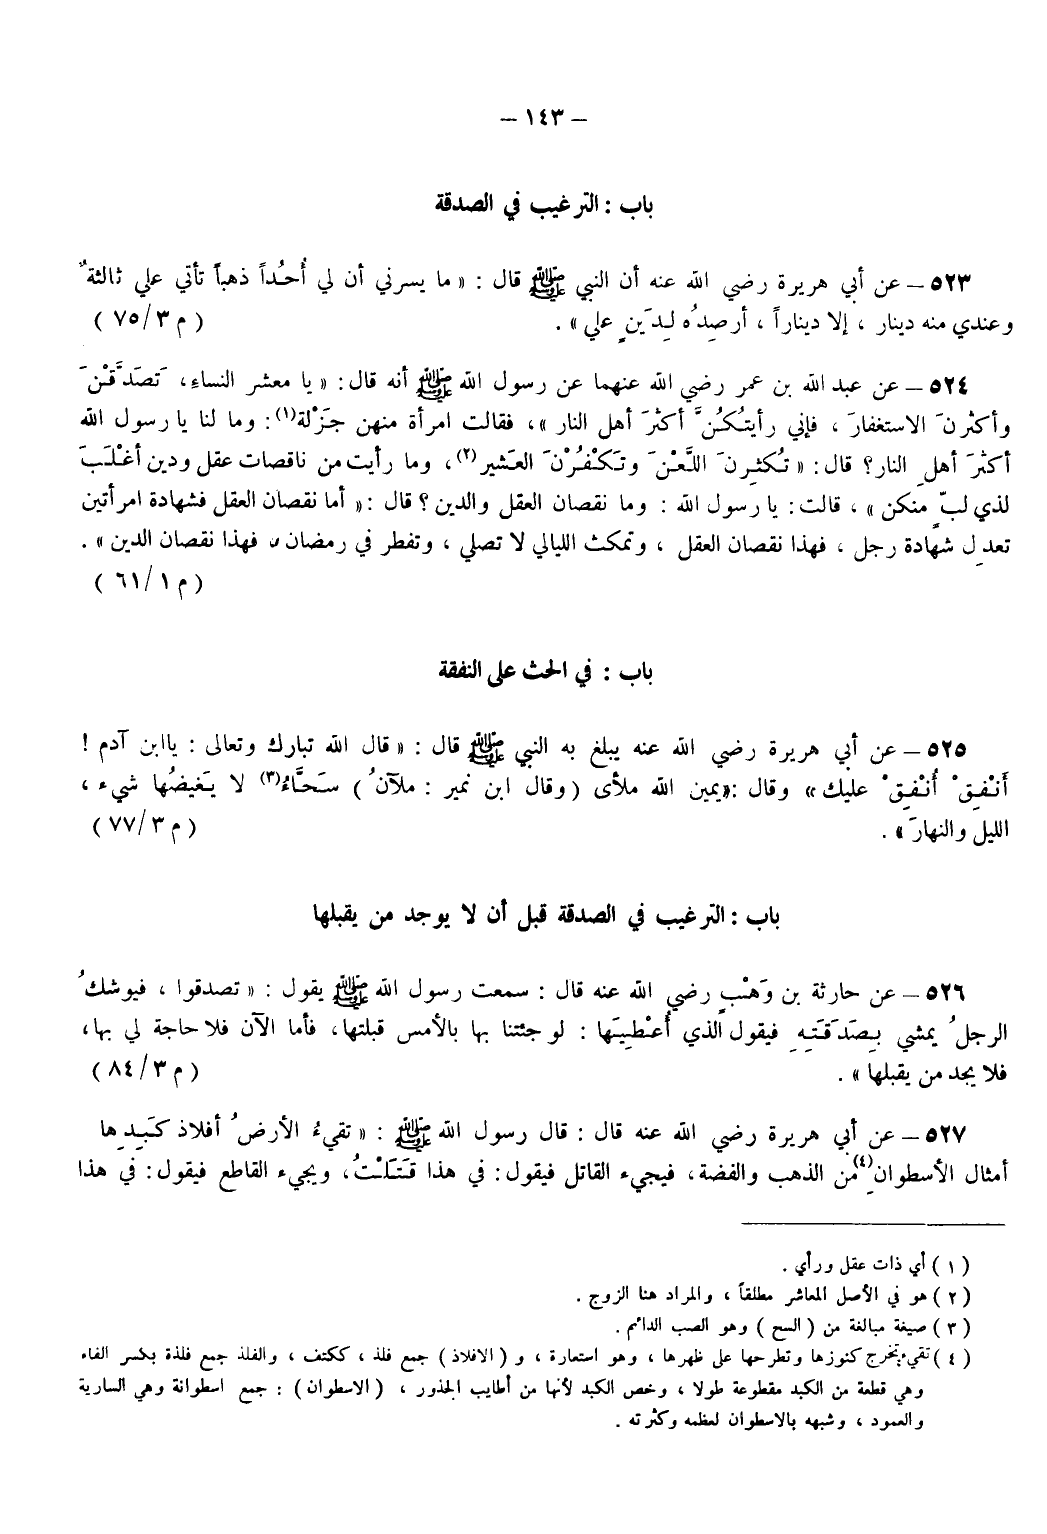 – ١٤٣ –
باب : الترغيب في الصدقة
٥٢٣ – عن أبي هريرة رضي الله عنه أن النبي ﷺ قال : « ما يسرني أن لي أُحُداً ذهباً تأتي علي ثالثةٌ
وعندي منه دينار ، إلا ديناراً ، أرصِدُه لِدَينٍ علي » . ( م ٧٥/٣ )
٥٢٤ – عن عبد الله بن عمر رضي الله عنهما عن رسول الله ﷺ أنه قال : « يا معشر النساء، تَصَدَّقْنَ
وأكثرنَ الاستغفارَ ، فإني رأيتُكُنَّ أكثرَ أهل النار »، فقالت امرأة منهن جَزْلة(١): وما لنا يا رسول الله
أكثرَ أهلِ النار؟ قال: « تُكثِرنَ اللَّعْنَ وتَكْفُرْنَ العَشير(٢)، وما رأيت من ناقصات عقل ودين أغْلَبَ
لذي لبٍّ منكن » ، قالت: يا رسول الله : وما نقصان العقل والدين ؟ قال :« أما نقصان العقل فشهادة امرأتين
تعدِل شهادة رجل ، فهذا نقصان العقل ، وتمكث الليالي لا تصلي ، وتفطر في رمضان ، فهذا نقصان الدين » .
( م ٦١/١ )
باب : في الحث على النفقة
٥٢٥ – عن أبي هريرة رضي الله عنه يبلغ به النبي ﷺ قال : « قال الله تبارك وتعالى : يا ابن آدم !
أَنْفِقْ أُنْفِقْ عليك » وقال :«يمين الله ملأى (وقال ابن نمير : ملآنُ ) سَحَّاءُ(٣) لا يَغيضُها شيء ،
الليل والنهارَ » . ( م ٧٧/٣ )
باب : الترغيب في الصدقة قبل أن لا يوجد من يقبلها
٥٢٦ – عن حارثة بن وَهْبٍ رضي الله عنه قال : سمعت رسول الله ﷺ يقول : « تصدقوا ، فيوشكُ
الرجلُ يمشي بِصَدَقَتِهِ فيقول الذي أُعْطِيَها : لو جئتنا بها بالأمس قبلتها، فأما الآن فلا حاجة لي بها،
فلا يجد من يقبلها » . ( م ٨٤/٣ )
٥٢٧ – عن أبي هريرة رضي الله عنه قال : قال رسول الله ﷺ : « تقيءُ الأرضُ أفلاذ كَبِدِها
أمثال الأسطوانِ(٤)من الذهب والفضة، فيجيء القاتل فيقول: في هذا قَتَلْتُ، ويجيء القاطع فيقول: في هذا
( ١ ) أي ذات عقل ورأي .
( ٢ ) هو في الأصل المعاشر مطلقاً ، والمراد هنا الزوج .
( ٣ ) صيغة مبالغة من ( السح ) وهو الصب الدائم .
( ٤ ) تقيء: تخرج كنوزها وتطرحها على ظهرها ، وهو استعارة ، و ( الافلاذ ) جمع فلذ ، ككتف ، والفلذ جمع فلذة بكسر الفاء
وهي قطعة من الكبد مقطوعة طولا ، وخص الكبد لأنها من أطايب الجذور ، ( الاسطوان ) : جمع اسطوانة وهي السارية
والعمود ، وشبهه بالاسطوان لعظمه وكثرته .